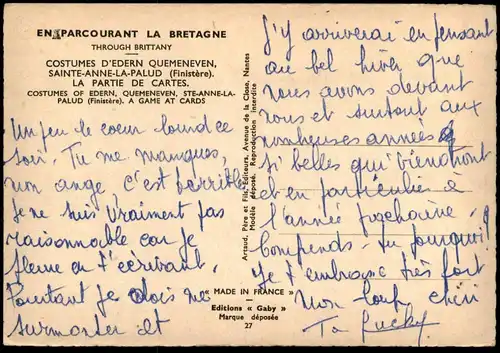 EN PARCOURANT LA BRETAGNE
THROUGH BRITTANY
COSTUMES D'EDERN QUEMENEVEN,
SAINTE-ANNE-LA-PALUD (Finistère).
LA PARTIE DE CARTES.
COSTUMES OF EDERN, QUEMENEVEN, STE-ANNE-LA-
PALUD (Finistère). A GAME AT CARDS
Un peu le coeur lourd ce
soir. Tu me manques,
mon ange, c'est terrible
je ne suis vraiment pas
raisonnable car je
pleure en t'écrivant.
Pourtant je dois me
surmonter et
Artaud, Père et Fils, Editeurs, Avenue de la Close, Nantes
Modèle déposé. Reproduction interdite
« MADE IN FRANCE »
Editions « Gaby »
Marque déposée
27
J'y arriverai en pensant
au bel hiver que
nous avons devant
nous et surtout aux
nombreuses années
si belles qui viendront
et en particulier à
l'année prochaine.
Comprends-tu pourquoi?
Je t'embrasse très fort
mon loup chéri
Ta